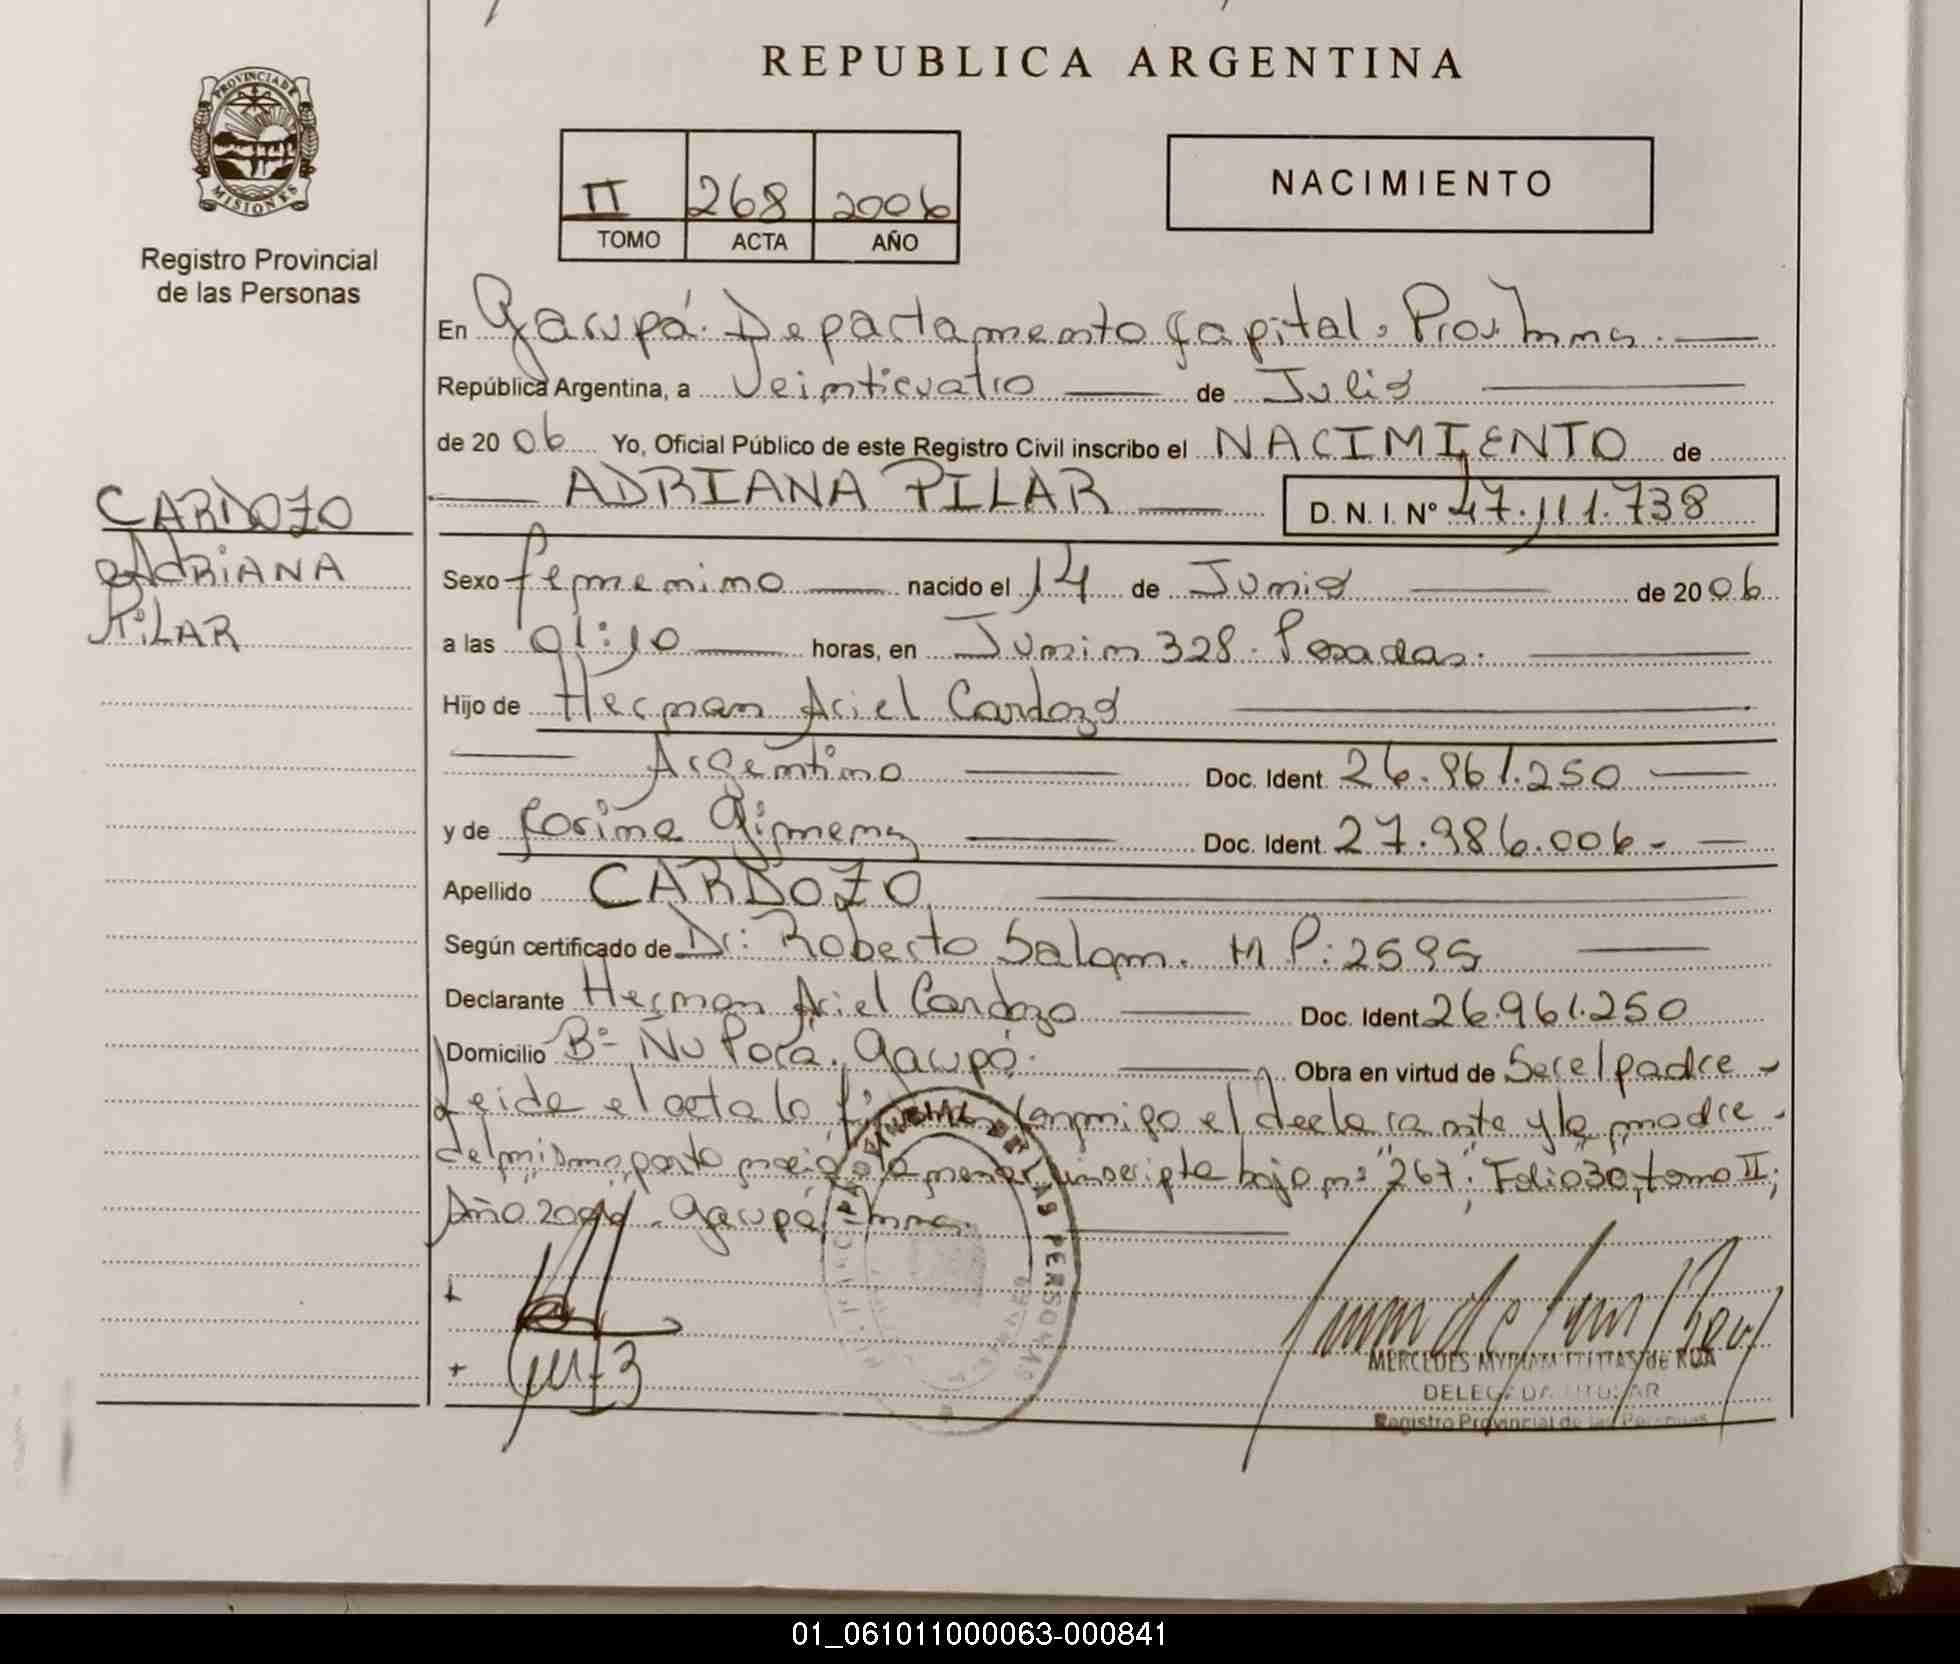 REPUBLICA ARGENTINA
PROVINCIA DE
MISIONES
Registro Provincial
de las Personas
II 268 2006
TOMO ACTA AÑO
NACIMIENTO
En Garupá. Departamento Capital. Prov. Mnes.
República Argentina, a Veinticuatro de Julio
de 2006 Yo, Oficial Público de este Registro Civil inscribo el NACIMIENTO de
ADRIANA PILAR D. N. I. Nº 47.111.738
CARDOZO
ADRIANA
PILAR
Sexo femenino nacido el 14 de Junio de 2006
a las 01:10 horas, en Junin 328. Posadas.
Hijo de Herman Ariel Cardozo
Argentino Doc. Ident. 26.961.250
y de Corina Gimenez Doc. Ident. 27.986.006-
Apellido CARDOZO
Según certificado de Dr: Roberto Salom. M P: 2595
Declarante Herman Ariel Cardozo Doc. Ident 26.961.250
Domicilio Bº Ñu Porá. Garupá. Obra en virtud de Ser el padre -
Leida el acta la firman conmigo el declarante y la madre.
del mismo parto nació la menor inscripta bajo nº "267", Folio 30, tomo II,
Año 2006. Garupá, Mnes.
DE LAS PERSONAS
MERCEDES MYRIAM de ROA
DELEGADA TITULAR
Registro Provincial de las Personas
01_061011000063-000841